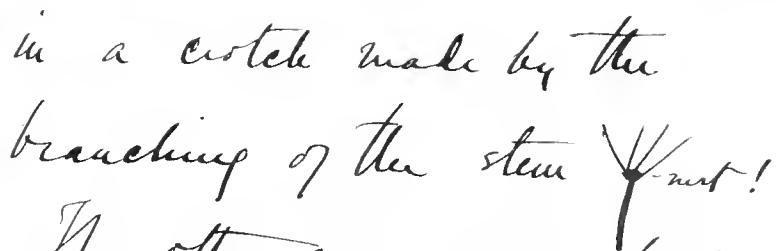 in a crotch made by the
branching of the stem -nest!